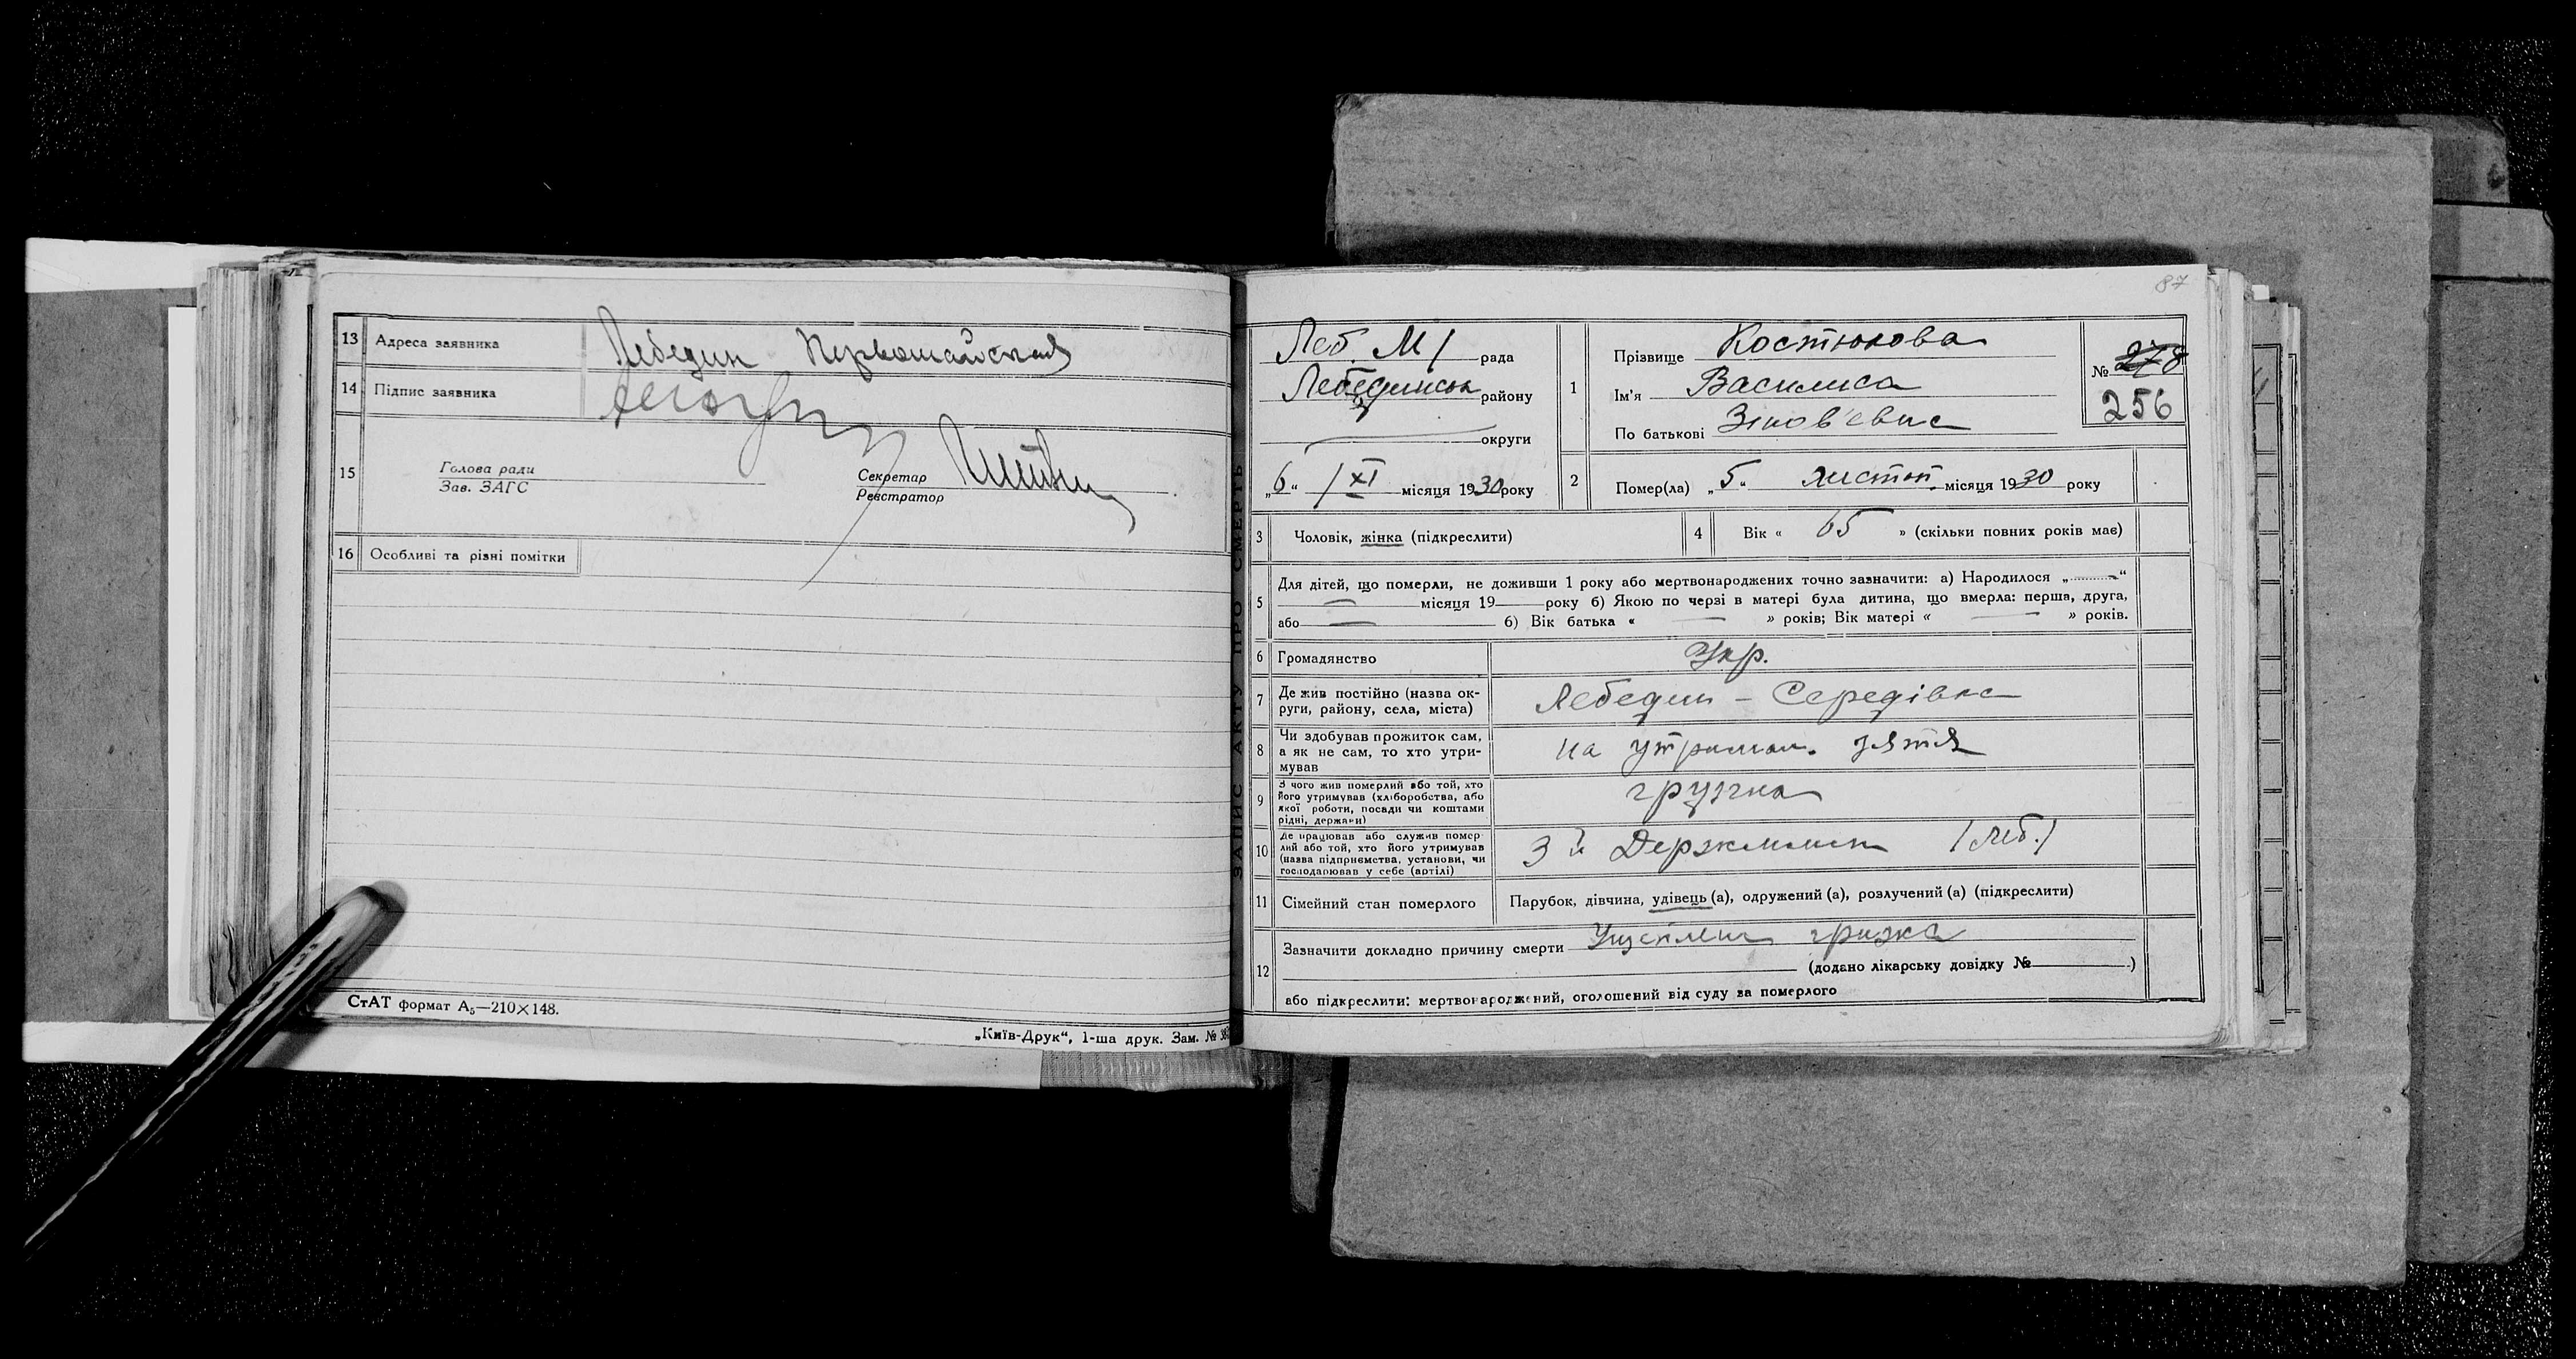 13 Адреса заявника Лебедин Первомайская
14 Підпис заявника
15 Голова ради
Зав. ЗАГС
Секретар
Реєстратор
16 Особливі та різні помітки
СтАТ формат А₅—210×148.
„Київ-Друк“, 1-ша друк. Зам. №
ЗАПИС АКТУ ПРО СМЕРТЬ
87
Леб. М/ рада
Лебединськ району
округи
„6“ / XI місяця 1930 року
1 Прізвище Костюкова
Ім'я Василиса
По батькові Зінов'евна
№ 278
256
2 Помер(ла) „5“ листоп. місяця 1930 року
3 Чоловік, жінка (підкреслити)
4 Вік « 65 » (скільки повних років має)
5 Для дітей, що померли, не доживши 1 року або мертвонароджених точно зазначити: а) Народилося „ — “
— місяця 19 року б) Якою по черзі в матері була дитина, що вмерла: перша, друга,
або — 6) Вік батька « — » років; Вік матері « — » років.
6 Громадянство Укр.
7 Де жив постійно (назва ок-
руги, району, села, міста) Лебедин – Середівка
8 Чи здобував прожиток сам,
а як не сам, то хто утри-
мував на утриман. зятя
9 З чого жив померлий або той, хто
його утримував (хліборобства, або
якої роботи, посади чи коштами
рідні, держави) грузчка
10 Де працював або служив помер-
лий або той, хто його утримував
(назва підприємства, установи, чи
господарював у себе (артілі) 3 й Держмлин /Леб./
11 Сімейний стан померлого Парубок, дівчина, удівець (а), одружений (а), розлучений (а) (підкреслити)
12 Зазначити докладно причину смерти Ущемлен грижа
(додано лікарську довідку № )
або підкреслити: мертвонароджений, оголошений від суду за померлого